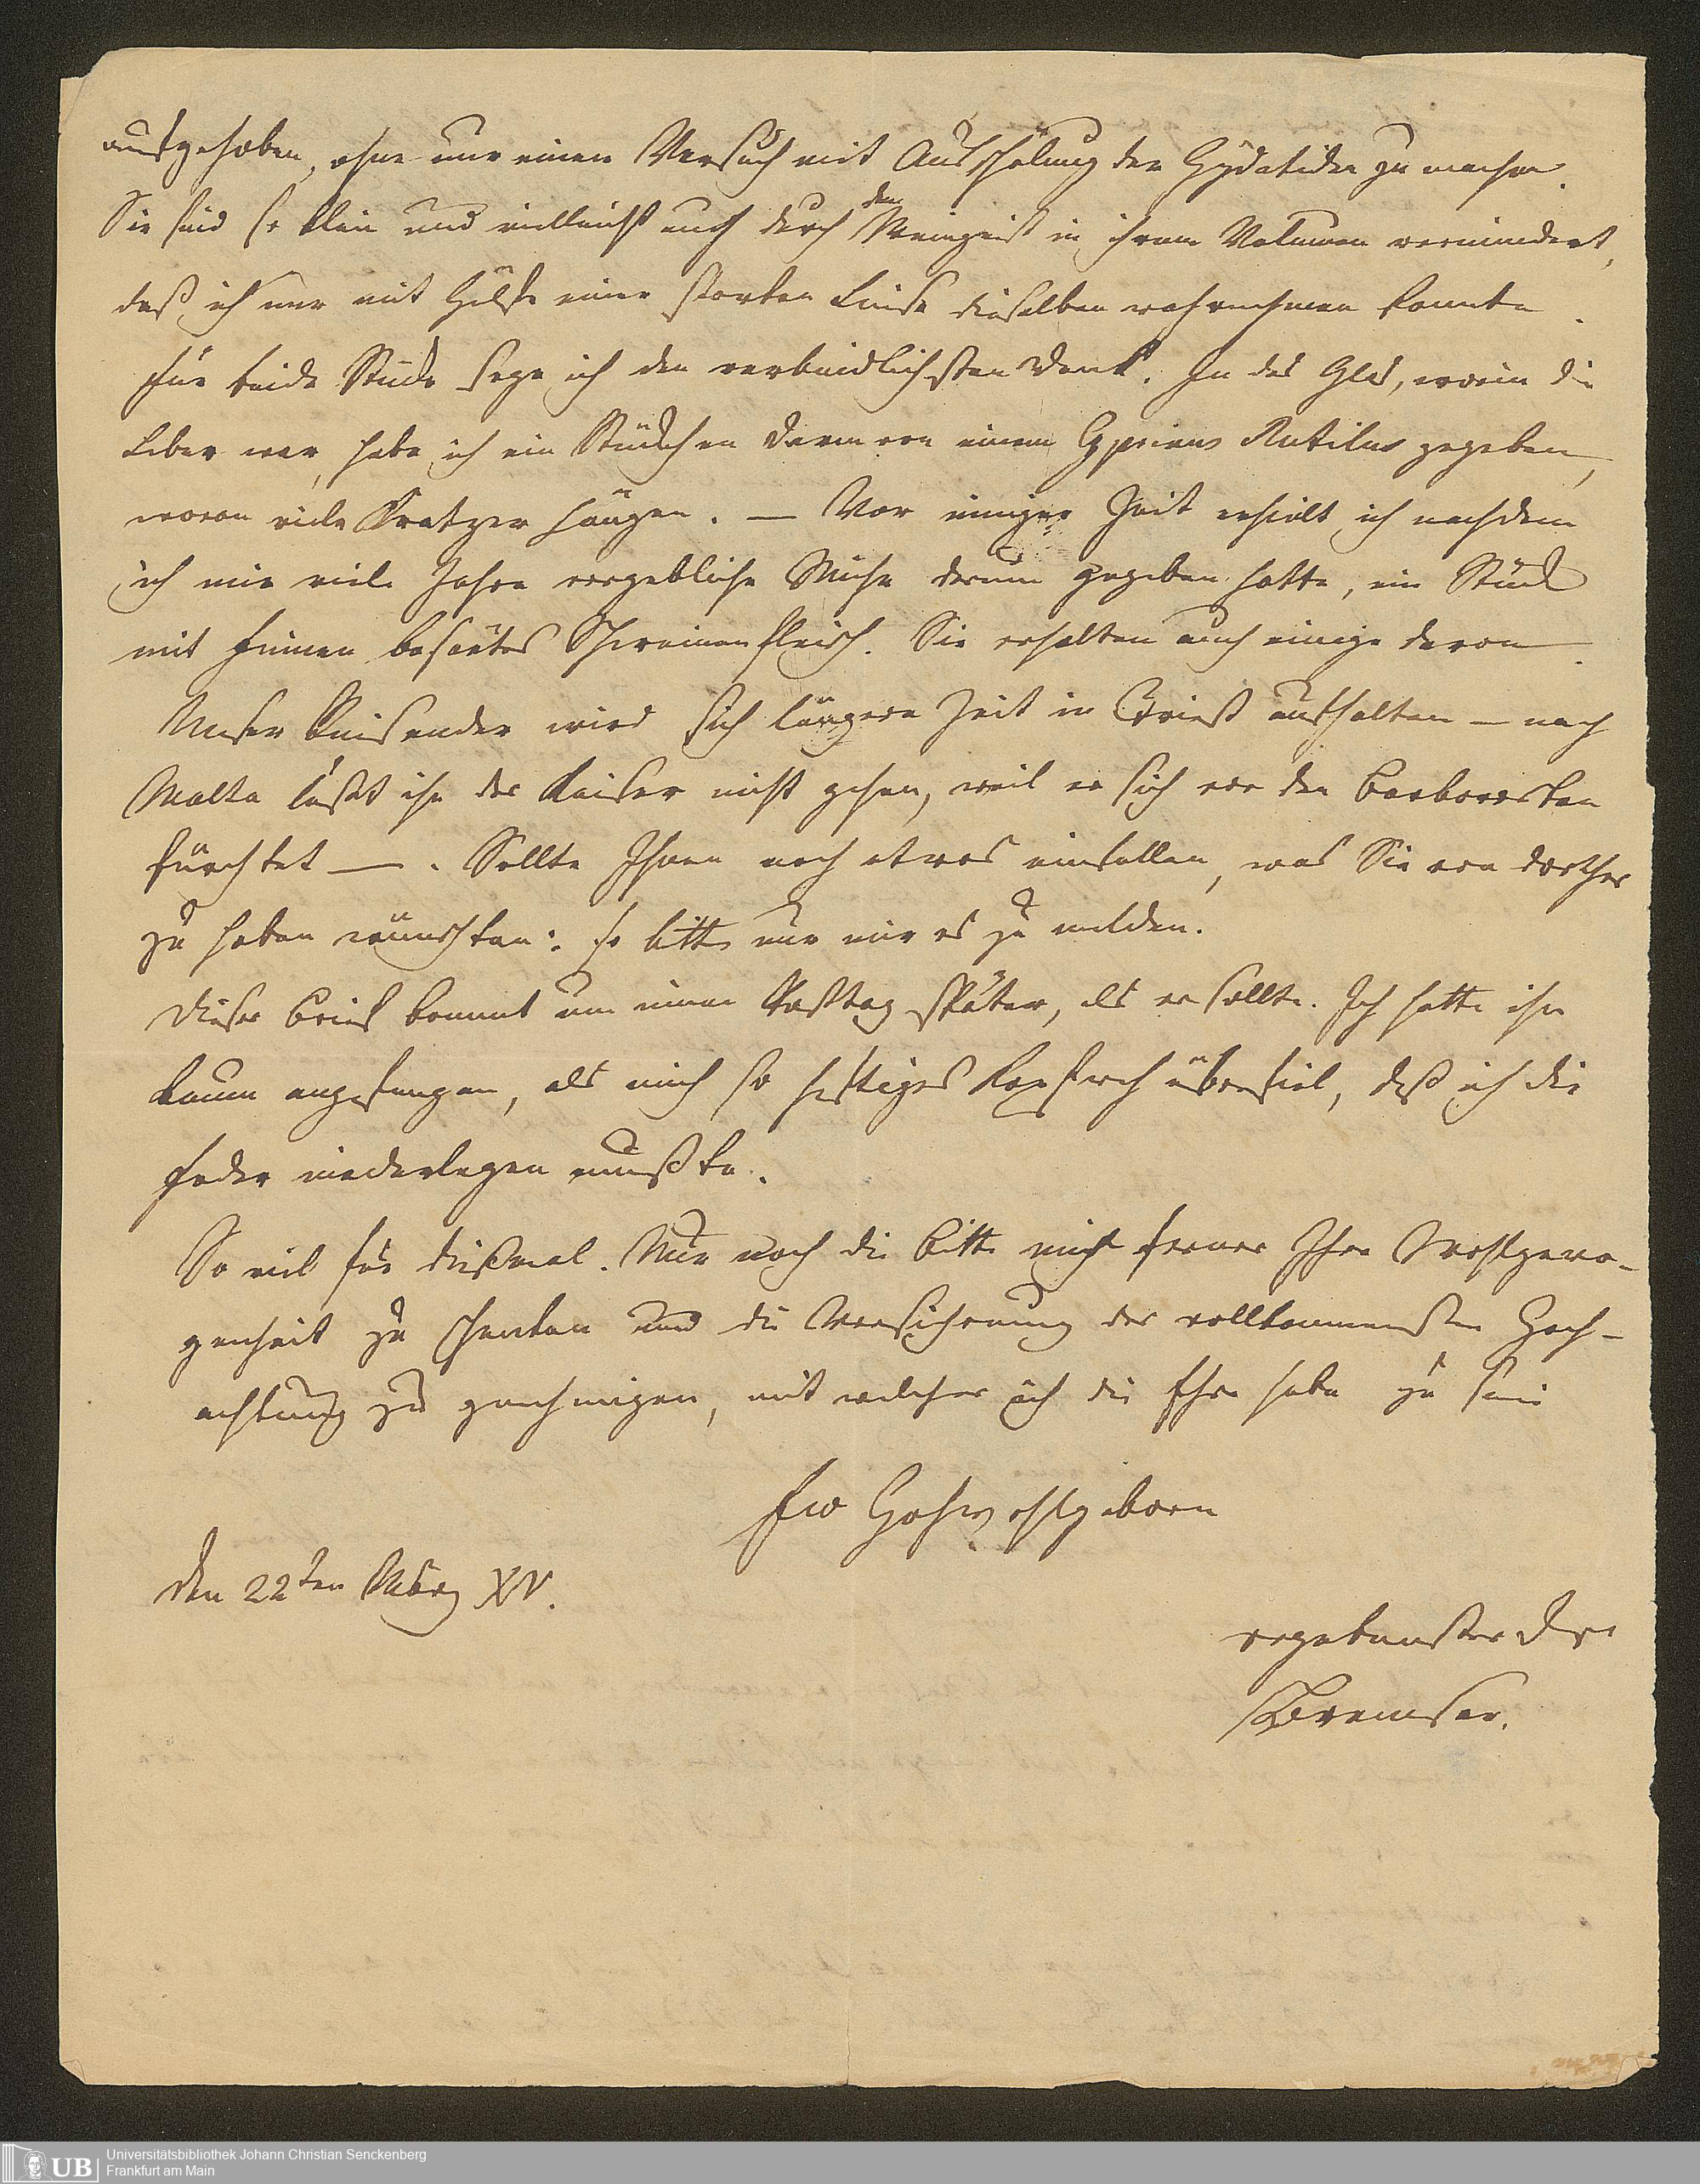 aufgehoben, ohne nur einen Versuch mit Ausschälung der Hydatiden zu machen.
Sie sind so klein und vielleicht auch durch den Weingeist in ihrem Volumen vermindert,
daß ich nur mit Hülfe einer starken Linse dieselben wahrnehmen konnte.
Für beide Stücke sage ich den verbindlichsten Dank. In das Glas, worin die
Leber war, habe ich ein Stückchen Darm von einem Cyprinus Rutilus gegeben,
woran viele Kratzer hängen. — Vor einiger Zeit erhielt ich nachdem
ich mir viele Jahre vergebliche Mühe darum gegeben hatte, ein Stück
mit Finnen besäetes Schweinenfleisch. Sie erhalten auch einige davon.
Unser Reisender wird sich längere Zeit in Triest aufhalten — nach
Malta läßt ihn der Kaiser nicht gehen, weil er sich vor den Barbaresken
fürchtet —. Sollte Ihnen noch etwas einfallen, was Sie von dorther
zu haben wünschten: so bitte nur mir es zu melden.
Dieser Brief kommt um einen Posttag später, als er sollte. Ich hatte ihn
kaum angefangen, als mich so heftiges Kopfweh überfiel, daß ich die
Feder niederlegen mußte.
So viel für dießmal. Nur noch die Bitte mich ferner Ihre Wohlgewo-
genheit zu schenken und die Versicherung der vollkommensten Hoch-
achtung zu genehmigen, mit welcher ich die Ehre habe zu sein
Ew Hochwohlgeborn
den 22ten März XV.
ergebenster
Bremser.
UB
Universitätsbibliothek Johann Christian Senckenberg
Frankfurt am Main